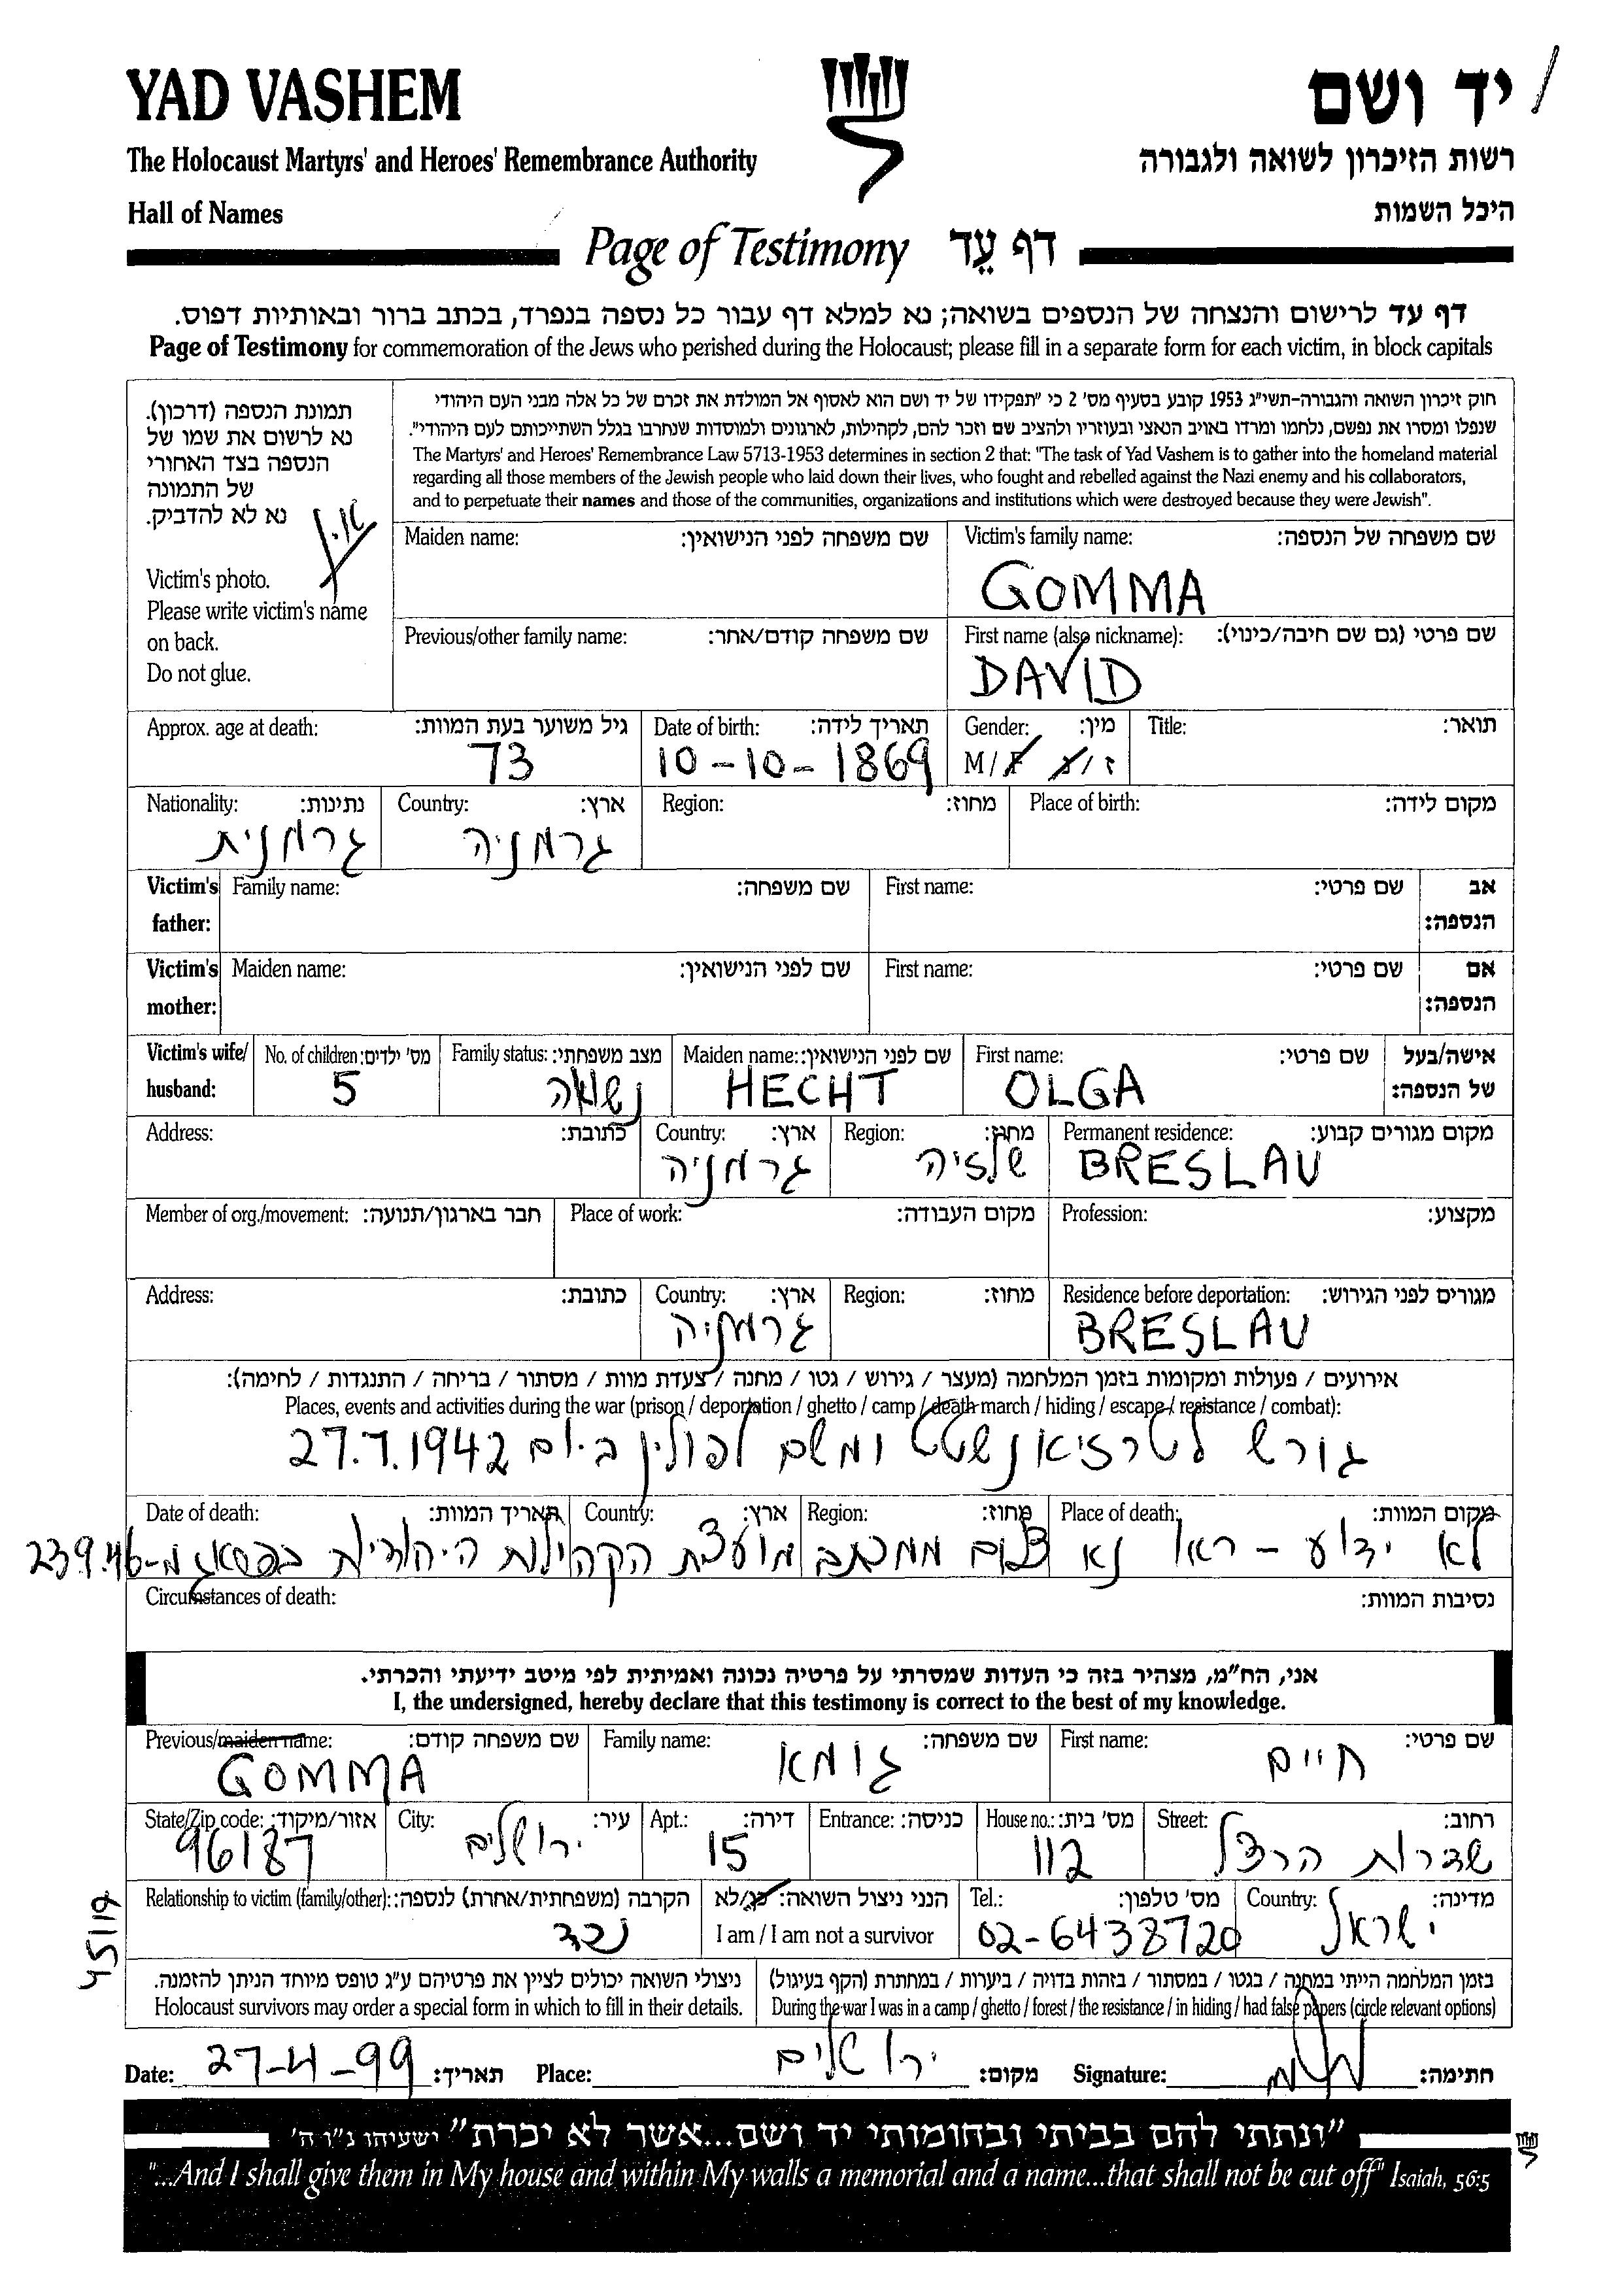 YAD VASHEM
יד ושם
The Holocaust Martyrs' and Heroes' Remembrance Authority
רשות הזיכרון לשואה ולגבורה
Hall of Names
היכל השמות
Page of Testimony דף עֵד
דף עד לרישום והנצחה של הנספים בשואה; נא למלא דף עבור כל נספה בנפרד, בכתב ברור ובאותיות דפוס.
Page of Testimony for commemoration of the Jews who perished during the Holocaust; please fill in a separate form for each victim, in block capitals
תמונת הנספה (דרכון).
נא לרשום את שמו של
הנספה בצד האחורי
של התמונה
נא לא להדביק.
Victim's photo.
Please write victim's name
on back.
Do not glue.
חוק זיכרון השואה והגבורה-תשי"ג 1953 קובע בסעיף מס' 2 כי "תפקידו של יד ושם הוא לאסוף אל המולדת את זכרם של כל אלה מבני העם היהודי
שנפלו ומסרו את נפשם, נלחמו ומרדו באויב הנאצי ובעוזריו ולהציב שם וזכר להם, לקהילות, לארגונים ולמוסדות שנחרבו בגלל השתייכותם לעם היהודי".
The Martyrs' and Heroes' Remembrance Law 5713-1953 determines in section 2 that: "The task of Yad Vashem is to gather into the homeland material
regarding all those members of the Jewish people who laid down their lives, who fought and rebelled against the Nazi enemy and his collaborators,
and to perpetuate their names and those of the communities, organizations and institutions which were destroyed because they were Jewish".
Maiden name: שם משפחה לפני הנישואין: Victim's family name: שם משפחה של הנספה:
GOMMA
Previous/other family name: שם משפחה קודם/אחר: First name (also nickname): שם פרטי (גם שם חיבה/כינוי):
DAVID
Approx. age at death: גיל משוער בעת המוות: Date of birth: תאריך לידה: Gender: מין: Title: תואר:
73 10-10-1869 M/F ז/נ
Nationality: נתינות: Country: ארץ: Region: מחוז: Place of birth: מקום לידה:
גרמנית גרמניה
Victim's Family name: שם משפחה: First name: שם פרטי: אב
father: הנספה:
Victim's Maiden name: שם לפני הנישואין: First name: שם פרטי: אם
mother: הנספה:
Victim's wife/ No. of children: מס' ילדים: Family status: מצב משפחתי: Maiden name: שם לפני הנישואין: First name: שם פרטי: אישה/בעל
husband: 5 נשואה HECHT OLGA של הנספה:
Address: כתובת: Country: ארץ: Region: מחוז: Permanent residence: מקום מגורים קבוע:
גרמניה שלזיה BRESLAU
Member of org./movement: חבר בארגון/תנועה: Place of work: מקום העבודה: Profession: מקצוע:
Address: כתובת: Country: ארץ: Region: מחוז: Residence before deportation: מגורים לפני הגירוש:
גרמניה BRESLAU
אירועים / פעולות ומקומות בזמן המלחמה (מעצר / גירוש / גטו / מחנה / צעדת מוות / מסתור / בריחה / התנגדות / לחימה):
Places, events and activities during the war (prison / deportation / ghetto / camp / death march / hiding / escape / resistance / combat):
גורש לטרזיאנשטט ומשם לפולין ביום 27.7.1942
Date of death: תאריך המוות: Country: ארץ: Region: מחוז: Place of death: מקום המוות:
לא ידוע - ראו נא צלום ממכתב מועצת הקהילות היהודיות בפראג מ-23.9.46
Circumstances of death: נסיבות המוות:
אני, הח"מ, מצהיר בזה כי העדות שמסרתי על פרטיה נכונה ואמיתית לפי מיטב ידיעתי והכרתי.
I, the undersigned, hereby declare that this testimony is correct to the best of my knowledge.
Previous/maiden name: שם משפחה קודם: Family name: שם משפחה: First name: שם פרטי:
GOMMA גומא חיים
State/Zip code: אזור/מיקוד: City: עיר: Apt.: דירה: Entrance: כניסה: House no.: מס' בית: Street: רחוב:
96187 ירושלים 15 112 שדרות הרצל
Relationship to victim (family/other): הקרבה (משפחתית/אחרת) לנספה: הנני ניצול השואה: כן/לא Tel.: מס' טלפון: Country: מדינה:
נכד I am / I am not a survivor 02-6438720 ישראל
45119
ניצולי השואה יכולים לציין את פרטיהם ע"ג טופס מיוחד הניתן להזמנה. בזמן המלחמה הייתי במחנה / בגטו / במסתור / בזהות בדויה / ביערות / במחתרת (הקף בעיגול)
Holocaust survivors may order a special form in which to fill in their details. During the war I was in a camp / ghetto / forest / the resistance / in hiding / had false papers (circle relevant options)
Date: 27-4-99 תאריך: Place: ירושלים מקום: Signature: חתימה:
"ונתתי להם בביתי ובחומותי יד ושם...אשר לא יכרת" ישעיהו נ"ו ה'
"...And I shall give them in My house and within My walls a memorial and a name...that shall not be cut off" Isaiah, 56:5